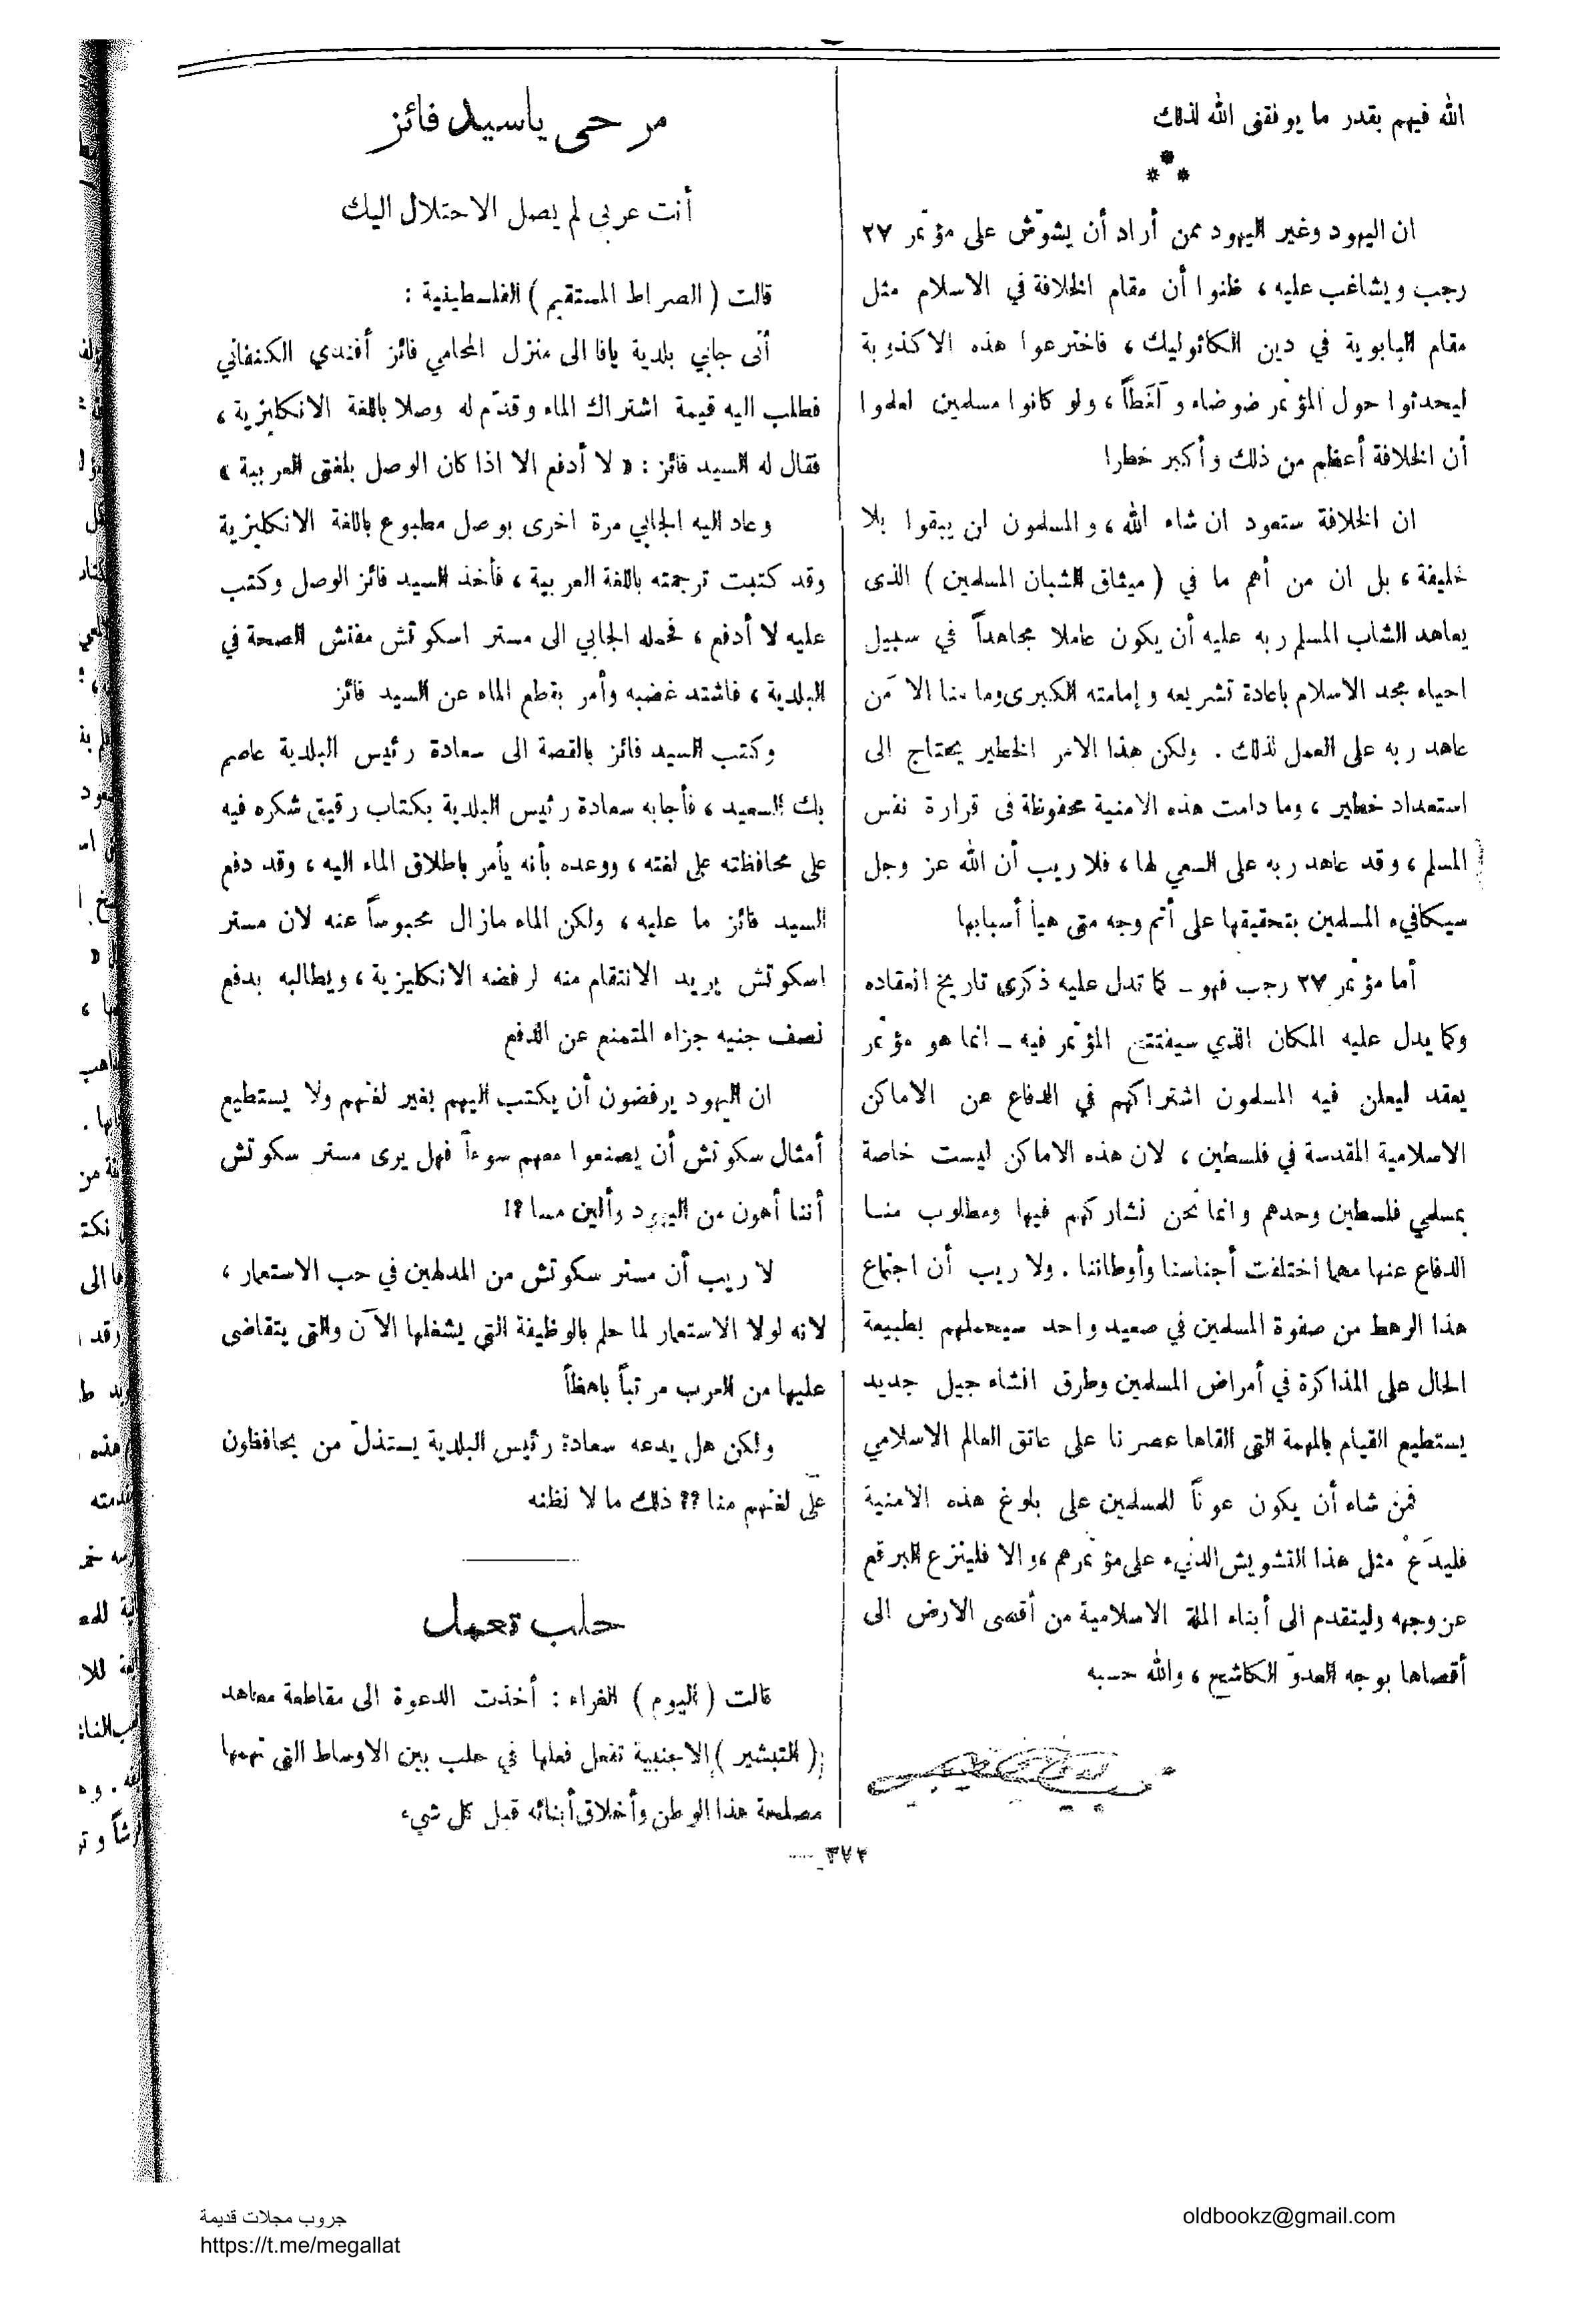 الله فيهم بقدر ما يوفقنى الله لذلك
***
ان اليهود وغير اليهود ممن أراد أن يشوّش على مؤتمر ٢٧
رجب ويشاغب عليه، ظنوا أن مقام الخلافة في الاسلام مثل
مقام البابوية في دين الكاثوليك، فاخترعوا هذه الاكذوبة
ليحدثوا حول المؤتمر ضوضاء ولَغَطاً، ولو كانوا مسلمين لعلموا
أن الخلافة أعظم من ذلك وأكبر خطرا
ان الخلافة ستعود ان شاء الله، والمسلمون لن يبقوا بلا
خليفة، بل ان من أهم ما في (ميثاق الشبان المسلمين) الذى
يعاهد الشاب المسلم ربه عليه أن يكون عاملا مجاهداً في سبيل
احياء مجد الاسلام باعادة تشريعه وإمامته الكبرى وما منا الا مَن
عاهد ربه على العمل لذلك . ولكن هذا الامر الخطير يحتاج الى
استعداد خطير، وما دامت هذه الامنية محفوظة فى قرارة نفس
المسلم، وقد عاهد ربه على السعي لها، فلا ريب أن الله عز وجل
سيكافيء المسلمين بتحقيقها على أتم وجه متى هيأ أسبابها
أما مؤتمر ٢٧ رجب فهو ــ كما تدل عليه ذكرى تاريخ انعقاده
وكما يدل عليه المكان الذي سيفتتح المؤتمر فيه ــ انما هو مؤتمر
يعقد ليعلن فيه المسلمون اشتراكهم في الدفاع عن الاماكن
الاسلامية المقدسة في فلسطين، لان هذه الاماكن ليست خاصة
بمسلمي فلسطين وحدهم وانما نحن نشاركهم فيها ومطلوب منا
الدفاع عنها مهما اختلفت أجناسنا وأوطاننا . ولا ريب أن اجتماع
هذا الرهط من صفوة المسلمين في صعيد واحد سيحملهم بطبيعة
الحال على المذاكرة في أمراض المسلمين وطرق انشاء جيل جديد
يستطيع القيام بالمهمة التى القاها عصرنا على عاتق العالم الاسلامي
فمن شاء أن يكون عوناً للمسلمين على بلوغ هذه الامنية
فليدَعْ مثل هذا التشويش الدنيء على مؤتمرهم، والا فلينزع البرقع
عن وجهه وليتقدم الى أبناء الملة الاسلامية من أقصى الارض الى
أقصاها بوجه العدوّ الكاشح، والله حسبه
مرحى ياسيد فائز
أنت عربى لم يصل الاحتلال اليك
قالت (الصراط المستقيم) الفلسطينية :
أتى جابي بلدية يافا الى منزل المحامي فائز أفندي الكنفاني
فطلب اليه قيمة اشتراك الماء وقدّم له وصلا باللغة الانكليزية،
فقال له السيد فائز : « لا أدفع الا اذا كان الوصل بلغتى العربية »
وعاد اليه الجابي مرة اخرى بوصل مطبوع باللغة الانكليزية
وقد كتبت ترجمته باللغة العربية، فأخذ السيد فائز الوصل وكتب
عليه لا أدفع، فحمله الجابي الى مستر اسكوتش مفتش الصحة في
البلدية، فاشتد غضبه وأمر بقطع الماء عن السيد فائز
وكتب السيد فائز بالقصة الى سعادة رئيس البلدية عاصم
بك السعيد، فأجابه سعادة رئيس البلدية بكتاب رقيق شكره فيه
على محافظته على لغته، ووعده بأنه يأمر باطلاق الماء اليه، وقد دفع
السيد فائز ما عليه، ولكن الماء مازال محبوساً عنه لان مستر
اسكوتش يريد الانتقام منه لرفضه الانكليزية، ويطالبه بدفع
نصف جنيه جزاء التمنع عن الدفع
ان اليهود يرفضون أن يكتب اليهم بغير لغتهم ولا يستطيع
أمثال سكوتش أن يصنعوا معهم سوءاً فهل يرى مستر سكوتش
أننا أهون من اليهود وألين مسا ؟!
لا ريب أن مستر سكوتش من المدلهين في حب الاستعمار،
لانه لولا الاستعمار لما حلم بالوظيفة التى يشغلها الآن والتى يتقاضى
عليها من العرب مرتباً باهظاً
ولكن هل يدعه سعادة رئيس البلدية يستذلّ من يحافظون
على لغتهم منا ؟؟ ذلك ما لا نظنه
حلب تعمل
قالت (اليوم) الغراء : أخذت الدعوة الى مقاطعة معاهد
(التبشير) الاجنبية تفعل فعلها في حلب بين الاوساط التى تهمها
مصلحة هذا الوطن وأخلاق أبنائه قبل كل شيء
جروب مجلات قديمة
https://t.me/megallat
oldbookz@gmail.com